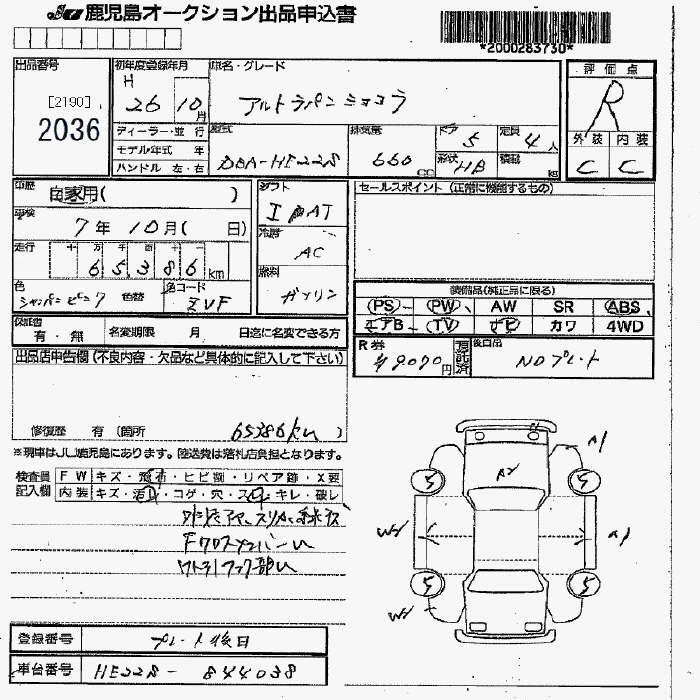 JU 鹿児島オークション出品申込書
*2000283730*
出品番号
[2190]
2036
初年度登録年月
H
26 10月
車名・グレード
アルトラパンショコラ
評価点
R
外装 内装
C C
ディーラー・並 行
モデル年式 年
ハンドル 左・右
型式
DBA-HE22S
排気量
660 cc
ドア
5
形状
HB
定員
4人
積載
kg
車歴
自家用( )
車検
7年 10月( 日)
走行
十 万 千 百 十 一
6 5 3 8 6 km
色
シャンパンピンク
色替
色コード
ZVF
シフト
I AT
冷房
AC
燃料
ガソリン
セールスポイント (正常に機能するもの)
装備品(純正品に限る)
PS PW AW SR ABS
エアB TV ナビ カワ 4WD
保証書
有・無
名変期限 月 日迄に名変できる方
R券
¥9090円
預託済
後日品
NOプレート
出品店申告欄 (不良内容・欠品など具体的に記入して下さい)
65386km
修復歴 有 (箇所 )
※現車はJU鹿児島にあります。陸送費は落札店負担となります。
検査員
記入欄
FW キズ・飛石・ヒビ割・リペア跡・X要
内装 キズ・汚れ・コゲ・穴・スレ・キレ・破レ
A1
A2
W2
A1
W2
5
5
5
5
登録番号
プレート後日
車台番号
HE22S-844038